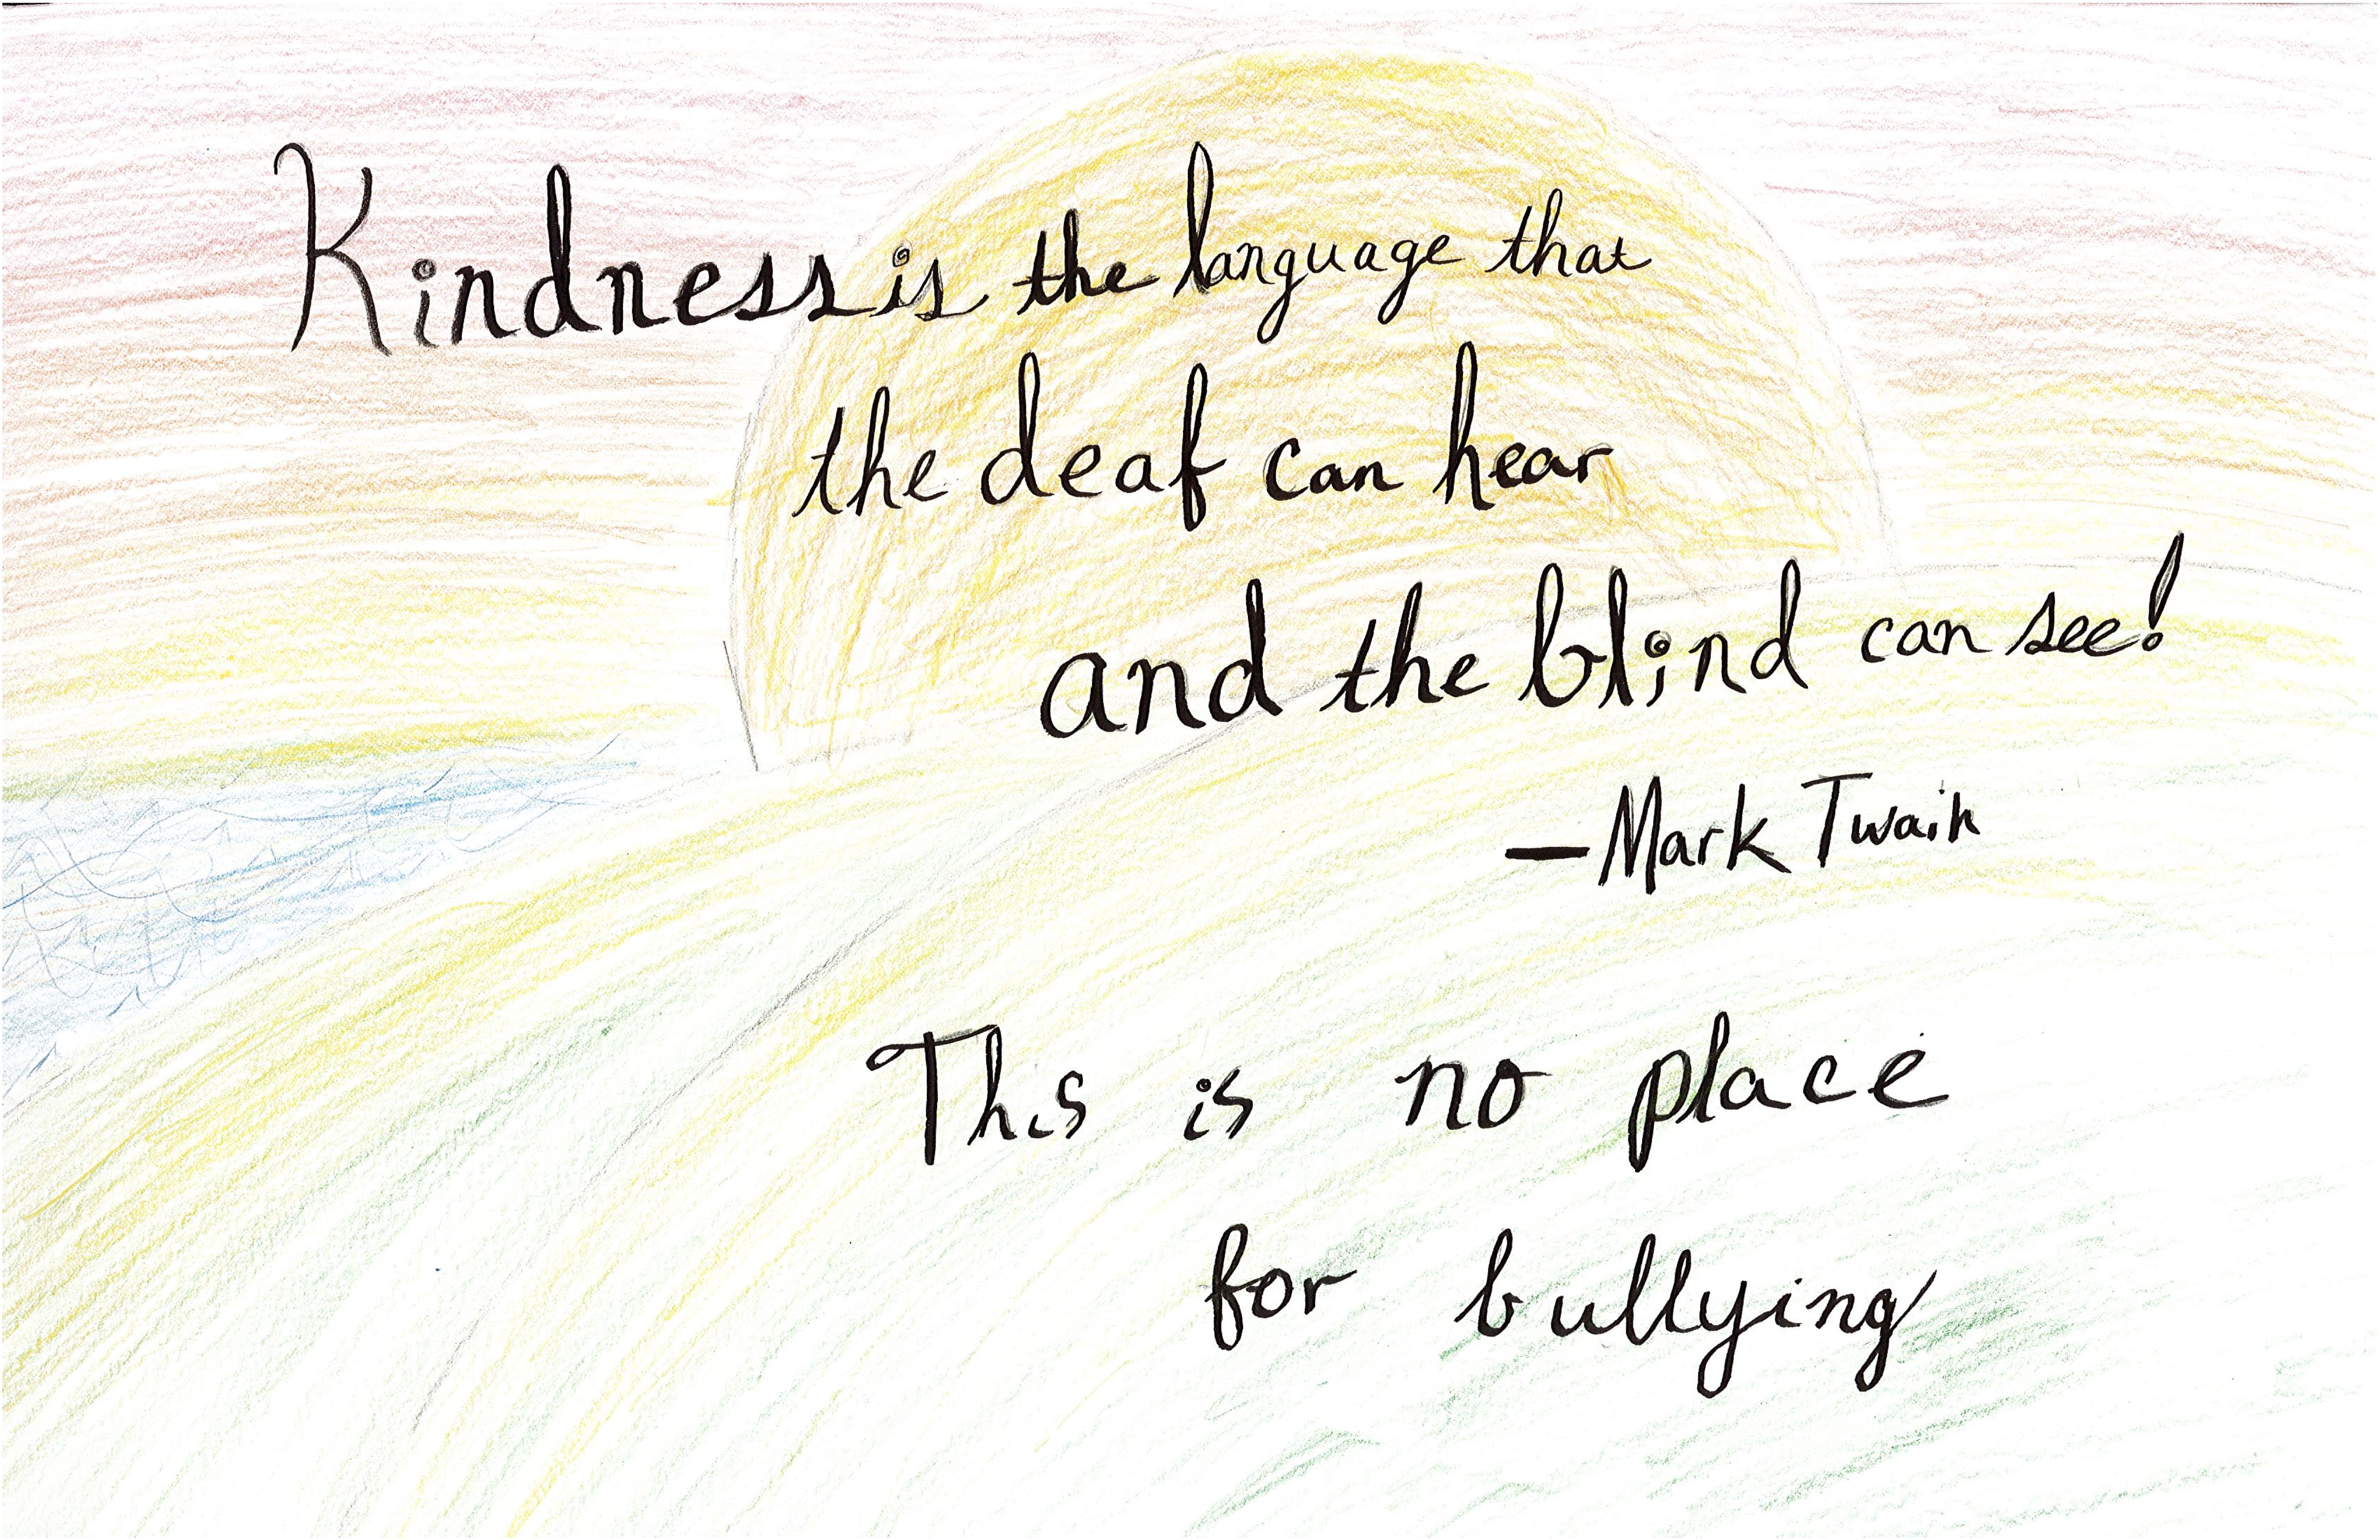 Kindness is the language that
the deaf can hear
and the blind can see!
—Mark Twain
This is no place
for bullying